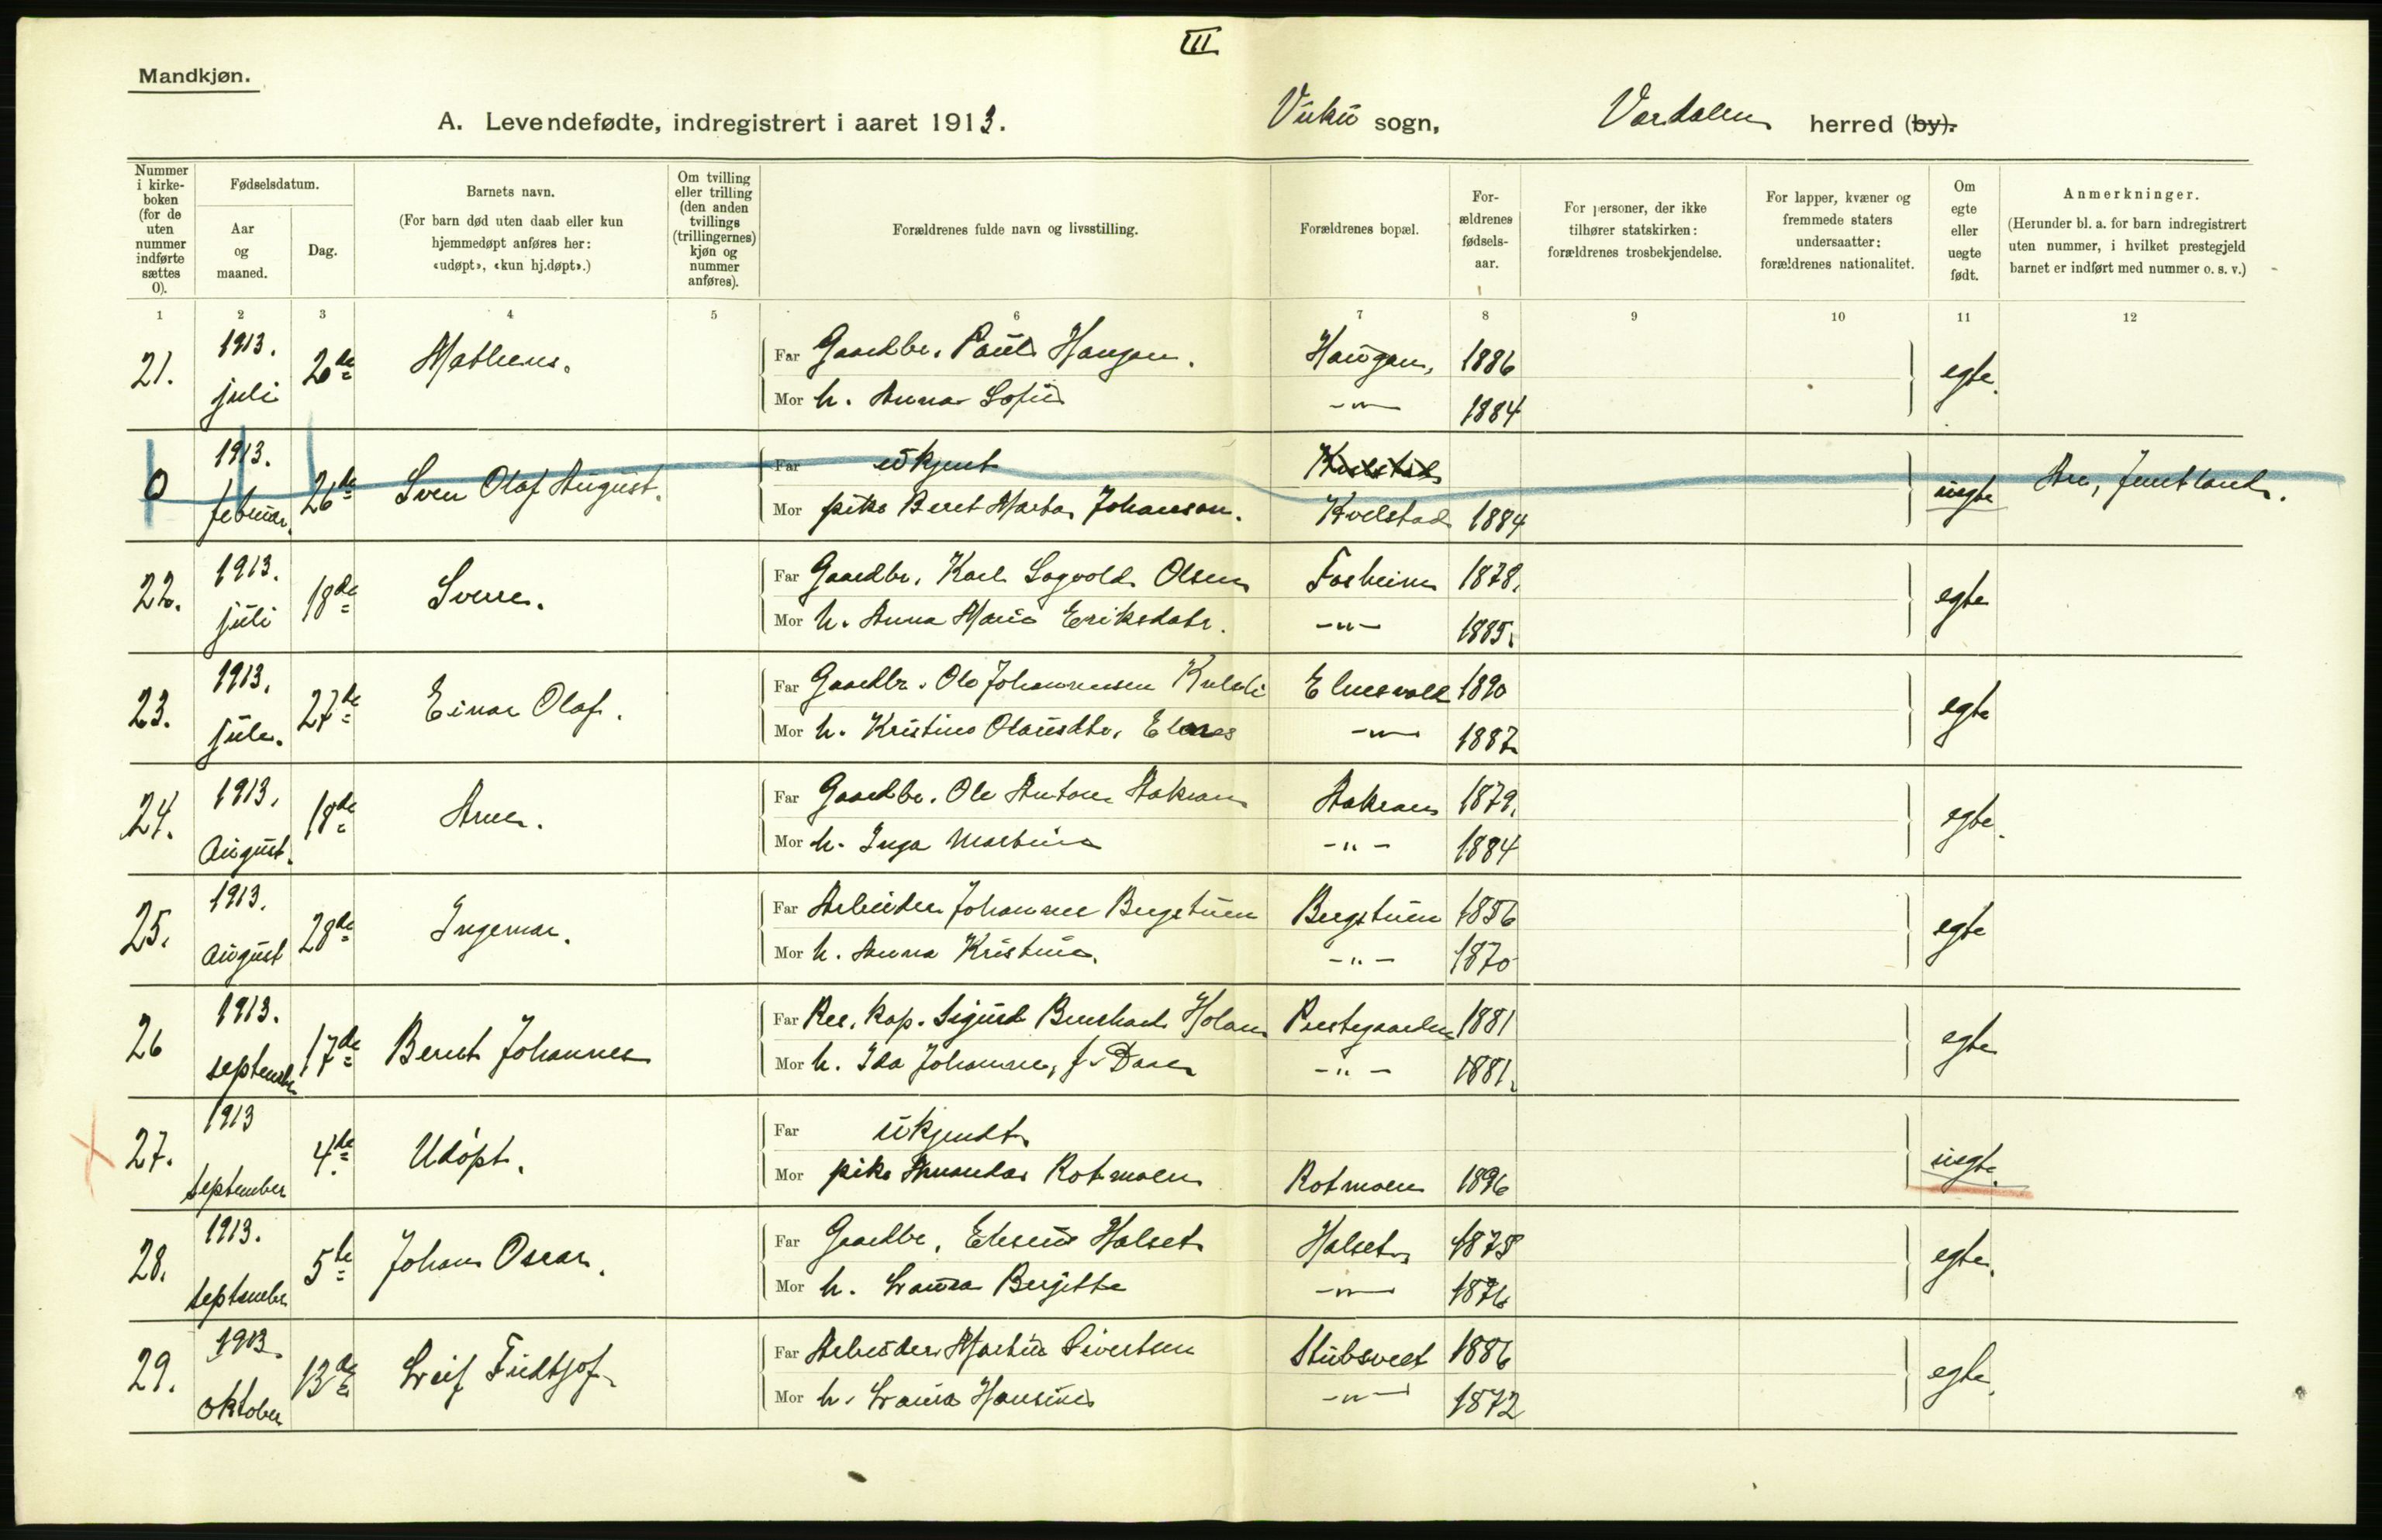 III
Mandkjøn.
A. Levendefødte, indregistrert i aaret 1913. Vuku sogn, Værdalen herred (by).
Nummer i kirke-boken (for de uten nummer indførte sættes 0).
Fødselsdatum.
Aar og maaned.
Dag.
Barnets navn.
(For barn død uten daab eller kun hjemmedøpt anføres her: «udøpt», «kun hj.døpt».)
Om tvilling eller trilling (den anden tvillings (trillingernes) kjøn og nummer anføres).
Forældrenes fulde navn og livsstilling.
Forældrenes bopæl.
For-ældrenes fødsels-aar.
For personer, der ikke tilhører statskirken: forældrenes trosbekjendelse.
For lapper, kvæner og fremmede staters undersaatter: forældrenes nationalitet.
Om egte eller uegte født.
Anmerkninger.
(Herunder bl. a. for barn indregistrert uten nummer, i hvilket prestegjeld barnet er indført med nummer o. s. v.)
1 2 3 4 5 6 7 8 9 10 11 12
21. 1913. juli 2de Matheus. Far Gaardbr. Paul Haugan. Haugan, 1886 egte.
Mor h. Anna Sofie -"- 1884
0 1913. februar. 26de Sven Olaf August. Far ukjent Kvelstad uegte Are, Jemtland.
Mor pike Beret Marta Johanson. Kvelstad 1884
22. 1913. juli 18de Sverre. Far Gaardbr. Karl Sagvold Olsen Forheim 1878. egte
Mor h. Anna Marie Eriksdatr. -"- 1885.
23. 1913. juli. 27de Einar Olaf. Far Gaardbr. Ole Johannessen Kulsli Elnesvold 1890 egte
Mor h. Kristine Olausdtr. Elnes -"- 1887
24. 1913. August. 18de Arne. Far Gaardbr. Ole Anton Aakran Aakran 1879. egte.
Mor h. Inga Martina -"- 1884
25. 1913. August 28de Ingemar. Far Arbeider Johannes Bergstuen Bergstuen 1856 egte
Mor h. Anna Kristine. -"- 1870
26 1913. september 17de Bernt Johannes Far Res. Kap. Sigurd Bernhard Holan Prestegaarden 1881 egte
Mor h. Ida Johanne, f. Daae -"- 1881.
27. 1913 september 4de. Udøpt. Far ukjendt. uegte.
Mor pike Amanda Rotmoen Rotmoen 1896
28. 1913. september 5te Johan Oscar. Far Gaardbr. Halset Halset 1878 egte.
Mor h. Laura Bergitta -"- 1876
29. 1913. oktober 13de Leif Fridtjof. Far Arbeider Martin Sivertsen Stubsveet 1886 egte.
Mor h. Laura Hansine -"- 1872